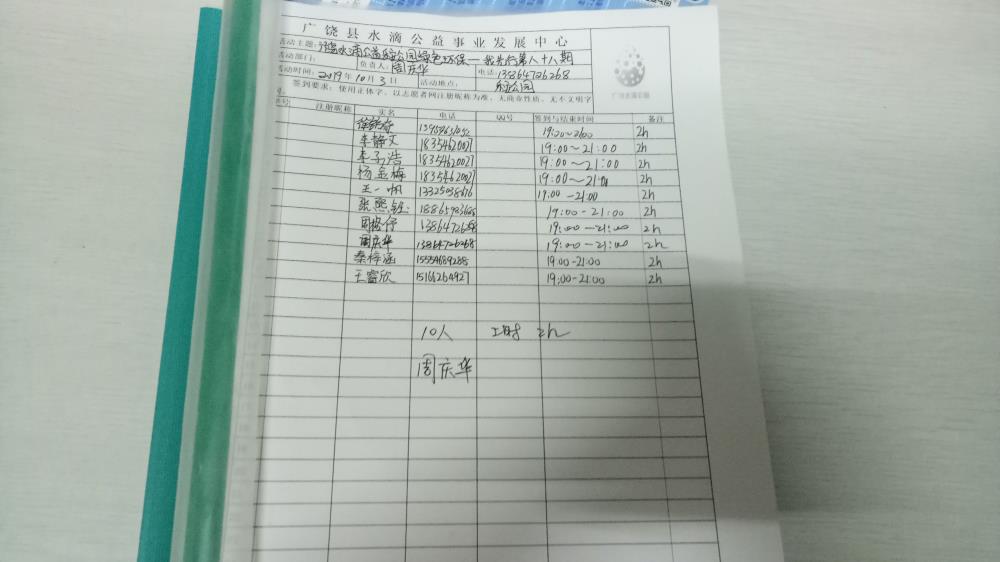 广饶县水滴公益事业发展中心
活动主题: 水滴公益 公园绿色环保一我先行第八十八期
活动部门: 负责人: 周庆华 电话: 13864726268
活动时间: 2019年10月3日 活动地点: 乐安公园
签到要求: 使用正体字, 以志愿者网注册昵称为准, 无商业性质、无不文明字
注册昵称 实名 电话 QQ号 签到与结束时间 备注
2h
李静文 18354620027 19:00~21:00 2h
李子浩 18354620027 19:00~21:00 2h
杨金梅 18354620027 19:00~21:00 2h
王一帆 19:00-21:00 2h
张熙钰 19:00-21:00 2h
19:00-21:00 2h
周庆华 13864726268 19:00-21:00 2h
秦梓涵 15554689288 19:00-21:00 2h
王睿欣 15166264927 19:00-21:00 2h
10人 工时 2h
周庆华